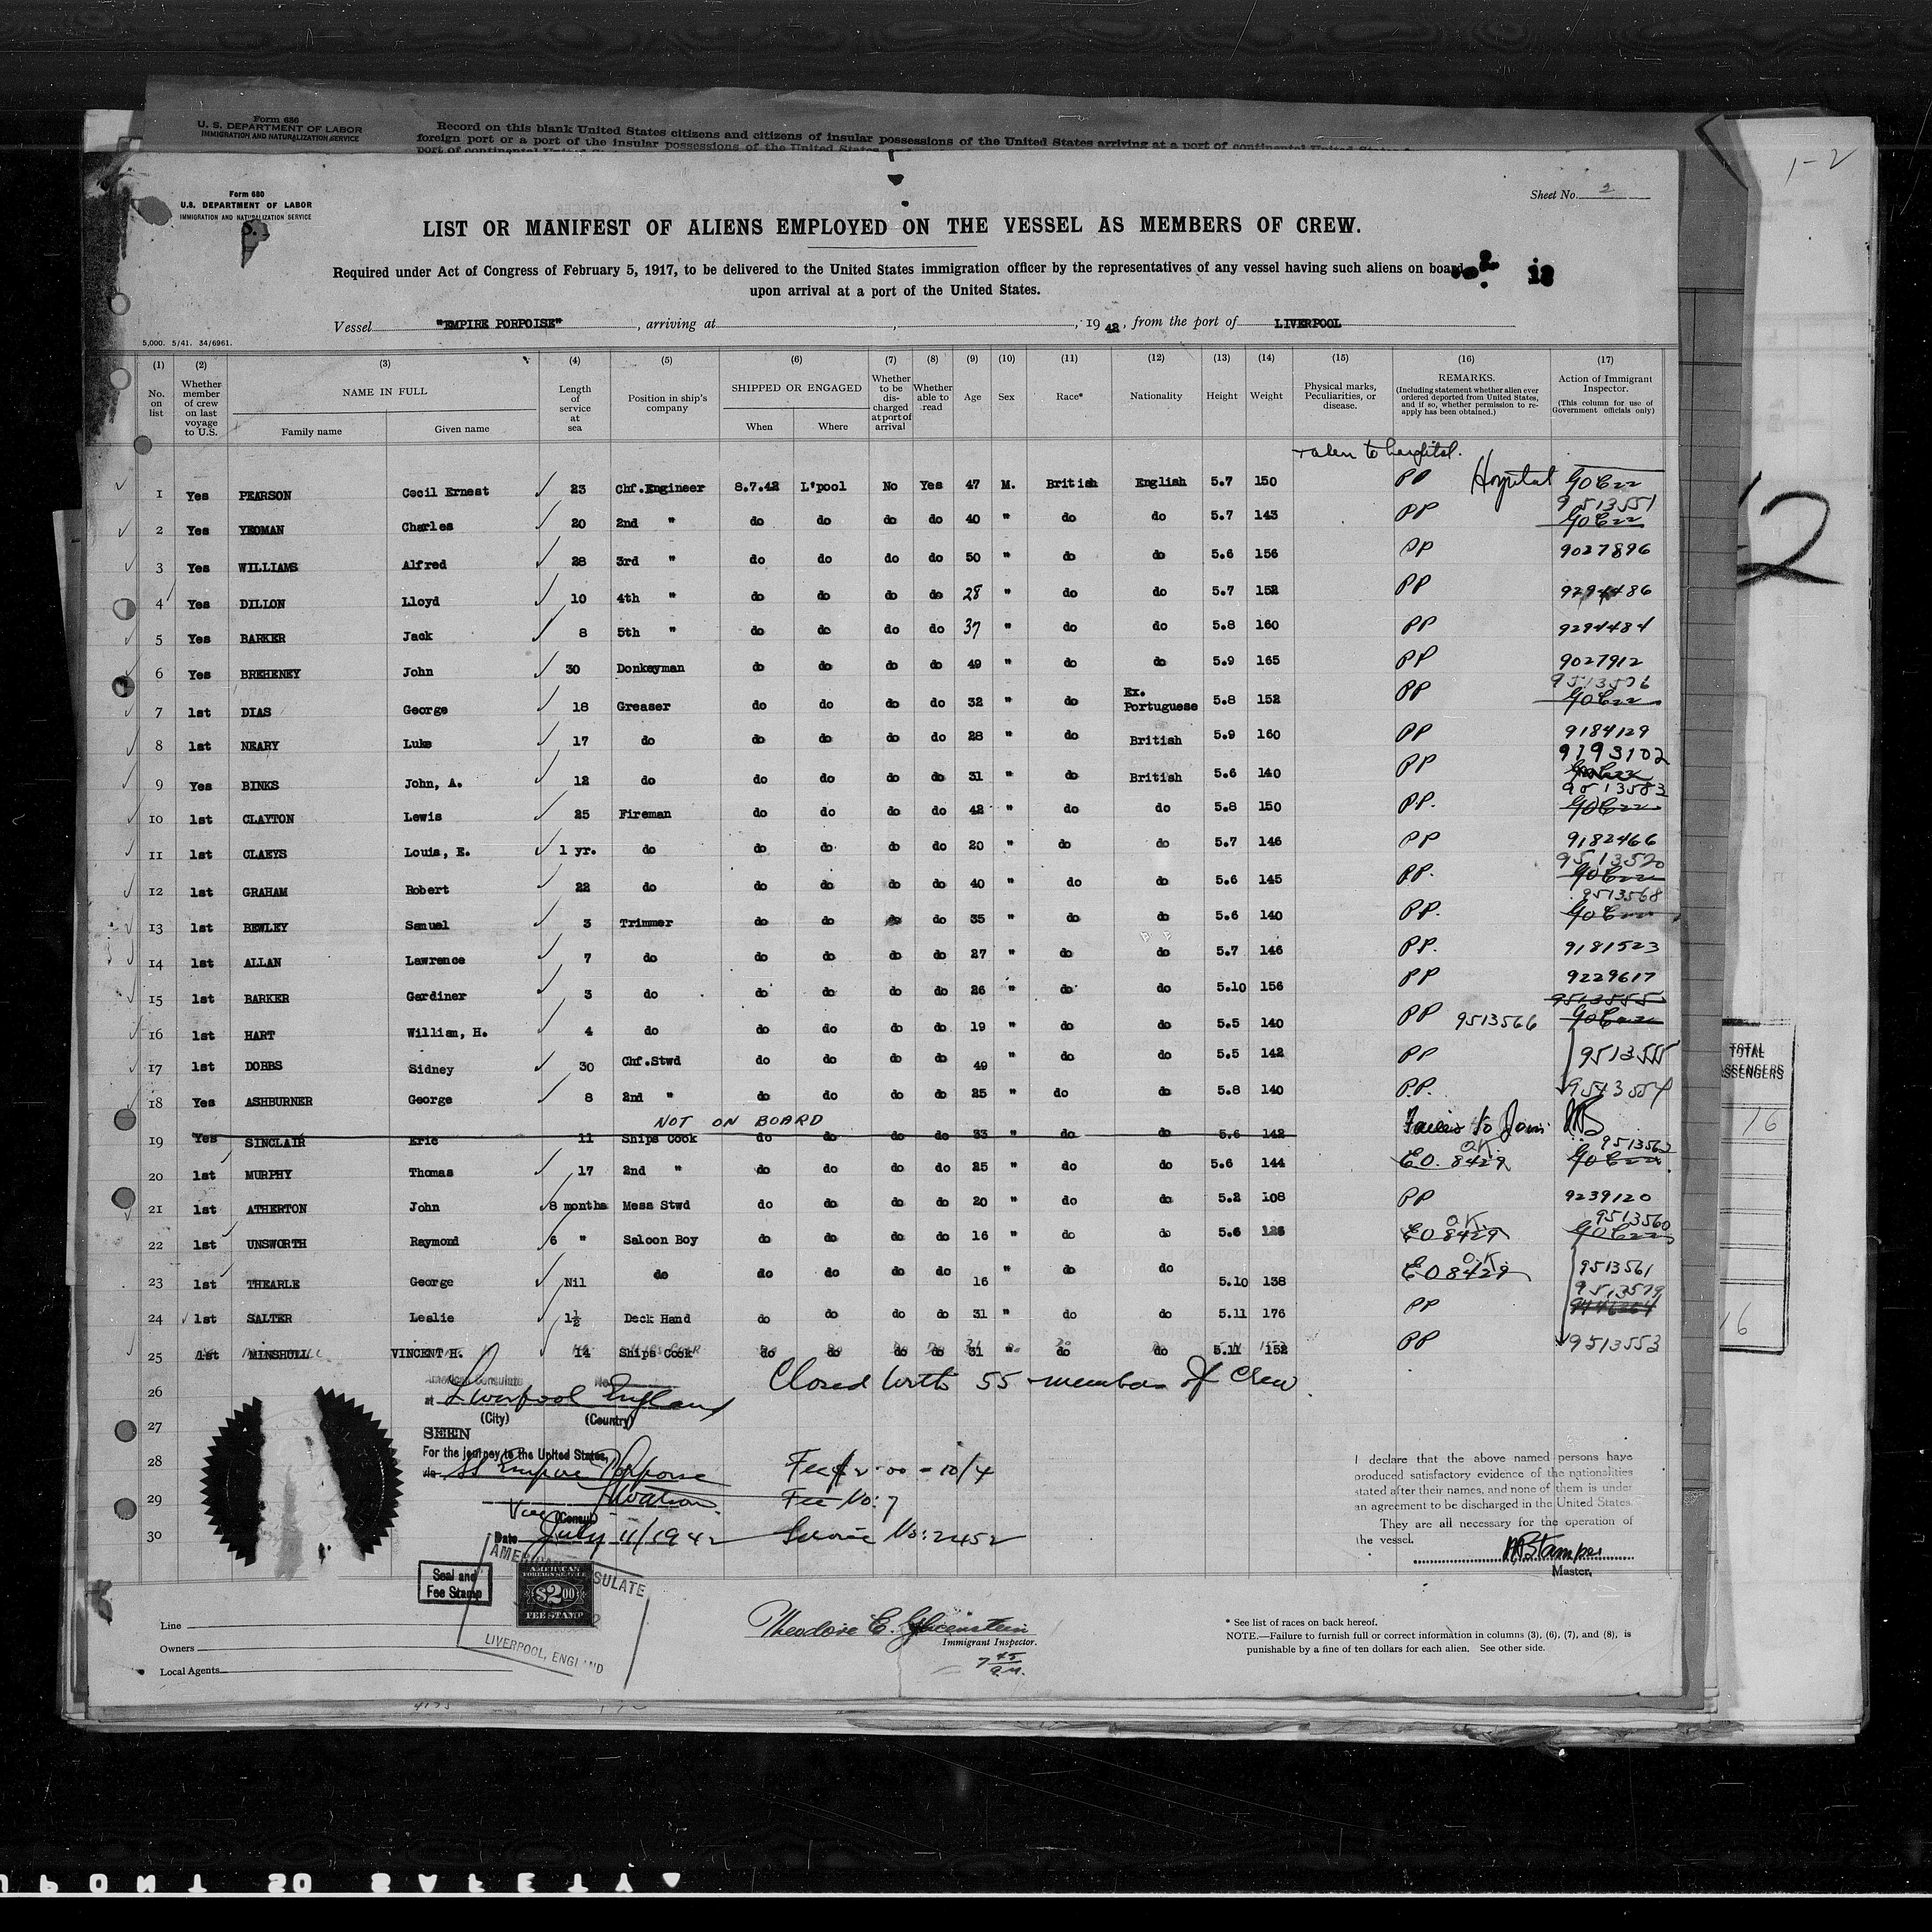 Form 680
U. S. DEPARTMENT OF LABOR
IMMIGRATION AND NATURALIZATION SERVICE
Record on this blank United States citizens and citizens of insular possessions of the United States arriving at a port of continental United States
foreign port or a port of the insular possessions of the United States
1-2
Form 680
U.S. DEPARTMENT OF LABOR
IMMIGRATION AND NATURALIZATION SERVICE
Sheet No. 2
LIST OR MANIFEST OF ALIENS EMPLOYED ON THE VESSEL AS MEMBERS OF CREW.
Required under Act of Congress of February 5, 1917, to be delivered to the United States immigration officer by the representatives of any vessel having such aliens on board
upon arrival at a port of the United States.
Vessel "EMPIRE PORPOISE", arriving at , , 1942, from the port of LIVERPOOL
5,000. 5/41. 34/6961.
(1) (2) (3) (4) (5) (6) (7) (8) (9) (10) (11) (12) (13) (14) (15) (16) (17)
No. on list
Whether member of crew on last voyage to U.S.
NAME IN FULL
Family name
Given name
Length of service at sea
Position in ship's company
SHIPPED OR ENGAGED
When
Where
Whether to be discharged at port of arrival
Whether able to read
Age
Sex
Race*
Nationality
Height
Weight
Physical marks, Peculiarities, or disease.
REMARKS.
(Including statement whether alien ever ordered deported from United States, and if so, whether permission to re-apply has been obtained.)
Action of Immigrant Inspector.
(This column for use of Government officials only)
Taken to hospital.
1 Yes PEARSON Cecil Ernest 23 Chf.Engineer 8.7.42 L'pool No Yes 47 M. British English 5.7 150 PP Hospital
2 Yes YEOMAN Charles 20 2nd " do do do do 40 " do do 5.7 143 PP 9513551
3 Yes WILLIAMS Alfred 28 3rd " do do do do 50 " do do 5.6 156 PP 9027896
4 Yes DILLON Lloyd 10 4th " do do do do 28 " do do 5.7 152 PP 9294486
5 Yes BARKER Jack 8 5th " do do do do 37 " do do 5.8 160 PP 9294484
6 Yes BREHENEY John 30 Donkeyman do do do do 49 " do do 5.9 165 PP 9027912
7 1st DIAS George 18 Greaser do do do do 32 " do Ex. Portuguese 5.8 152 PP 9513576
8 1st NEARY Luke 17 do do do do do 28 " do British 5.9 160 PP 9184129
9 Yes BINKS John, A. 12 do do do do do 31 " do British 5.6 140 PP 9193102
10 1st CLAYTON Lewis 25 Fireman do do do do 42 " do do 5.8 150 PP. 9513583
11 1st CLAEYS Louis, E. 1 yr. do do do do do 20 " do do 5.7 146 PP 9182466
12 1st GRAHAM Robert 22 do do do do do 40 " do do 5.6 145 PP. 9513570
13 1st BEWLEY Samuel 3 Trimmer do do do do 35 " do do 5.6 140 PP. 9513568
14 1st ALLAN Lawrence 7 do do do do do 27 " do do 5.7 146 PP. 9181523
15 1st BARKER Gardiner 3 do do do do do 26 " do do 5.10 156 PP 9229617
16 1st HART William, H. 4 do do do do do 19 " do do 5.5 140 PP 9513566 9513555
17 1st DOBBS Sidney 30 Chf.Stwd do do do do 49 " do do 5.5 142 PP 9513555
18 Yes ASHBURNER George 8 2nd " do do do do 25 " do do 5.8 140 P.P. 9513554
NOT ON BOARD
19 Yes SINCLAIR Eric 11 Ships Cook do do do do 33 " do do 5.6 142 Failed to Join
20 1st MURPHY Thomas 17 2nd " do do do do 25 " do do 5.6 144 O.K. E.O. 8429 9513562
21 1st ATHERTON John 8 months Mess Stwd do do do do 20 " do do 5.2 108 PP 9239120
22 1st UNSWORTH Raymond 6 " Saloon Boy do do do do 16 " do do 5.6 126 O.K. EO 8429 9513560
23 1st THEARLE George Nil do do do do do 16 " do do 5.10 138 O.K. EO 8429 9513561
24 1st SALTER Leslie 1½ Deck Hand do do do do 31 " do do 5.11 176 PP 9513579
25 1st MINSHULL VINCENT H. 14 Ships Cook do do do do 31 do do 5.11 152 PP 9513553
26
27
28
29
30
Closed with 55 members of Crew.
American Consulate
at Liverpool England
(City) (Country)
SEEN
For the journey to the United States,
via SS Empire Porpoise
Vice (Consul)
Date July 11/1942
Fee $2.00 = 10/4
Fee No: 7
Service No: 2452
Seal and
Fee Stamp
AMERICAN CONSULATE
LIVERPOOL, ENGLAND
AMERICAN
FOREIGN SERVICE
$2.00
FEE STAMP
I declare that the above named persons have
produced satisfactory evidence of the nationalities
stated after their names, and none of them is under
an agreement to be discharged in the United States.
They are all necessary for the operation of
the vessel.
Master.
Line
Owners
Local Agents
Theodore E.
Immigrant Inspector.
7 45 a.m.
* See list of races on back hereof.
NOTE.—Failure to furnish full or correct information in columns (3), (6), (7), and (8), is
punishable by a fine of ten dollars for each alien. See other side.
TOTAL
PASSENGERS
16
16